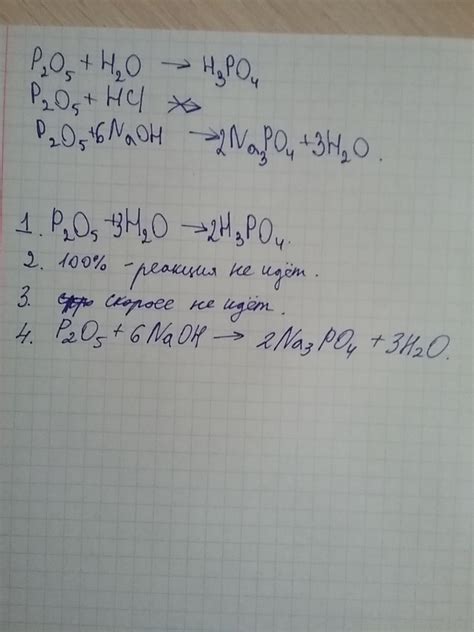 P₂O₅ + H₂O → H₃PO₄
P₂O₅ + HCl ↛
P₂O₅ + 6NaOH → 2Na₃PO₄ + 3H₂O.
1. P₂O₅ + 3H₂O → 2H₃PO₄.
2. 100% - реакция не идёт.
3. скорее не идёт.
4. P₂O₅ + 6NaOH → 2Na₃PO₄ + 3H₂O.